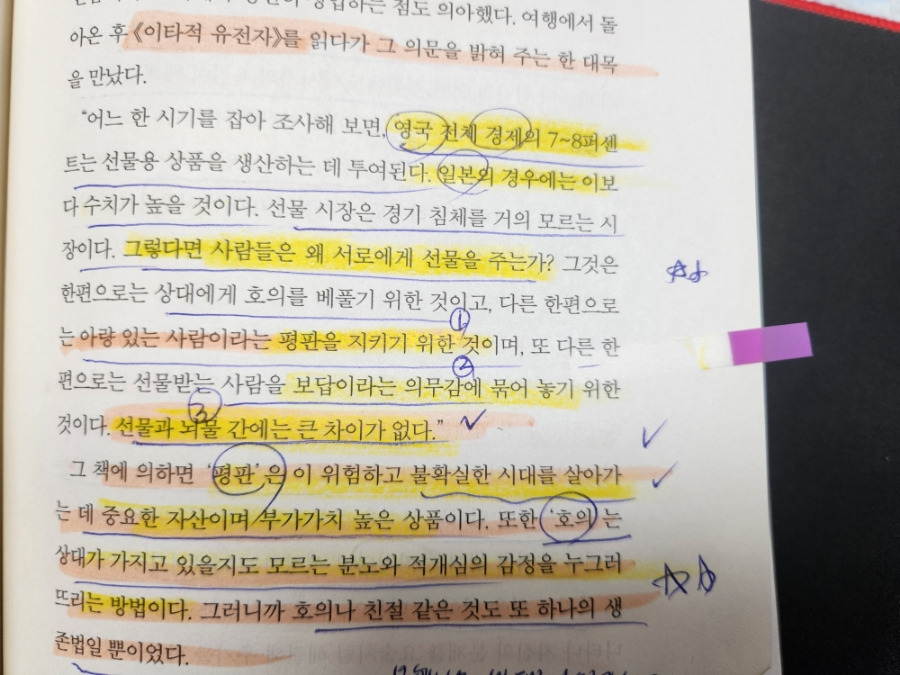 하는 점도 의아했다. 여행에서 돌
아온 후 《이타적 유전자》를 읽다가 그 의문을 밝혀 주는 한 대목
을 만났다.
“어느 한 시기를 잡아 조사해 보면, 영국 전체 경제의 7~8퍼센
트는 선물용 상품을 생산하는 데 투여된다. 일본의 경우에는 이보
다 수치가 높을 것이다. 선물 시장은 경기 침체를 거의 모르는 시
장이다. 그렇다면 사람들은 왜 서로에게 선물을 주는가? 그것은
한편으로는 상대에게 호의를 베풀기 위한 것이고, 다른 한편으로
①
는 아량 있는 사람이라는 평판을 지키기 위한 것이며, 또 다른 한
②
편으로는 선물받는 사람을 보답이라는 의무감에 묶어 놓기 위한
③
것이다. 선물과 뇌물 간에는 큰 차이가 없다.”
그 책에 의하면 ‘평판’은 이 위험하고 불확실한 시대를 살아가
는 데 중요한 자산이며 부가가치 높은 상품이다. 또한 ‘호의’는
상대가 가지고 있을지도 모르는 분노와 적개심의 감정을 누그러
뜨리는 방법이다. 그러니까 호의나 친절 같은 것도 또 하나의 생
존법일 뿐이었다.